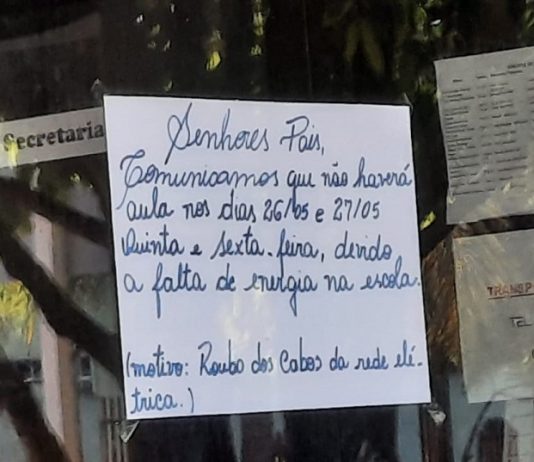 Secretaria
Senhores Pais,
Comunicamos que não haverá
aula nos dias 26/05 e 27/05
Quinta e sexta-feira, devido
a falta de energia na escola.
(motivo: Roubo dos Cabos da rede elé-
trica.)
TRANSP
TEL